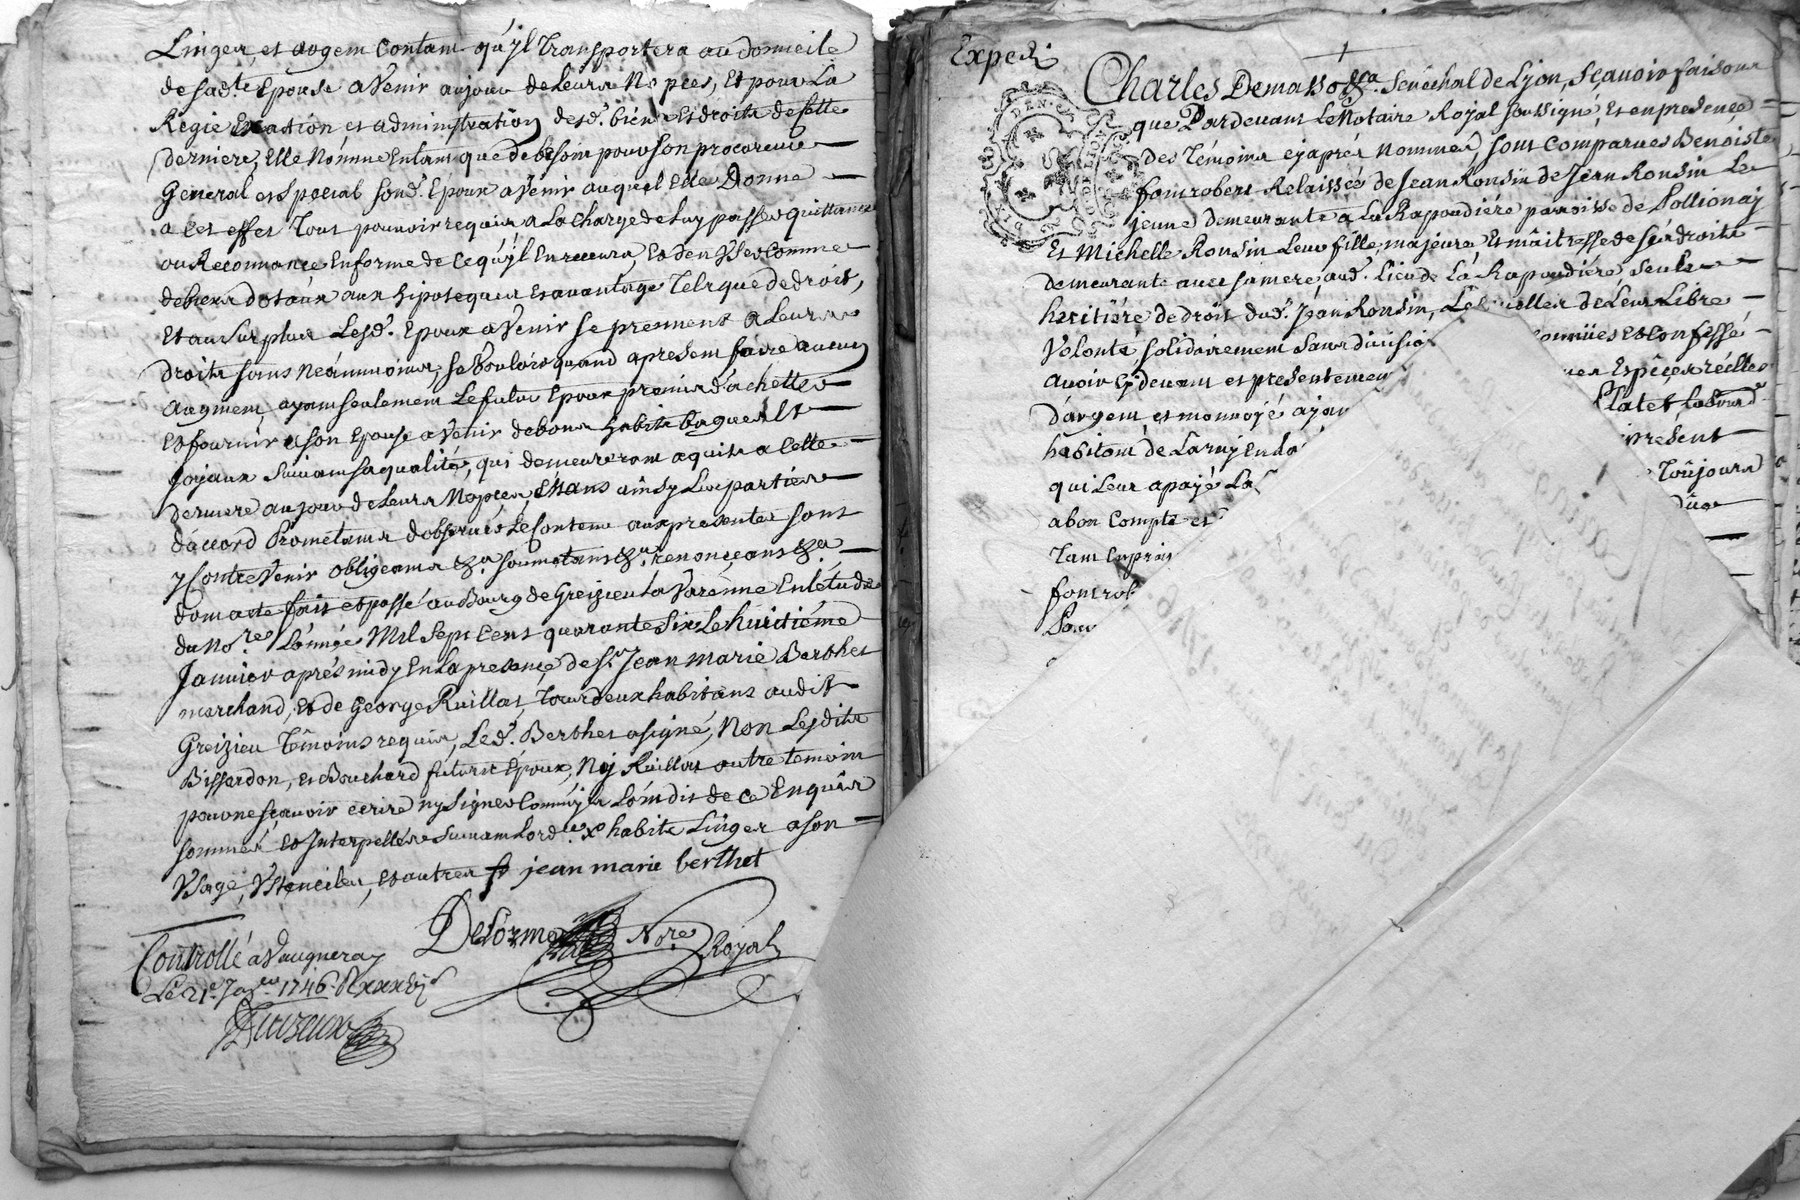 Linger, et argem contam qu'yl transportera au domicile
de sad.te Epouse a Venir au jour de Leurs Nopces, Et pour La
Regie Exaction et administration desd. biens Et droits de jcelle
derniere, Elle Nomme En tant que de besoin pour son procureur
General et special sond. Epoux a Venir auquel Elle Donne
a cet effet Tout pouvoir requis a La charge de Luy passer quittance
ou Reconnance En forme de ce qu'yl En recevra, Et d'en User comme
de biens dotaux aux hipoteques et avantage Tels que de droit,
Et au surplus Lesd. Epoux a Venir se prennent a Leurs
droits sans Neâmmoins, se Vouloir quand apresent faire aucun
augment, ayant seulement Le futur Epoux promis d'achetter
Et fournir a son Epouse a Venir de bons habits bagues Et
Joyaux suivant sa qualité, qui demeureront aquits a Cette
derniere au jour de Leurs Nopces Etans ainsy Les parties
d'accord Prometans d'observer Le contenu aux presentes sans
y Contrevenir obligeans &.a soumetans &.a renonçeans &.a
dont acte fait et passé au Bourg de Greizieu La Varenne En L'étude
du No.re L'année Mil sept Cent quarante six Le huitiéme
Janvier aprés midy En La presençe de S.r Jean Marie Berthet
marchand, Et de George Ruillat, Tous deux habitans audit
Greizieu témoins requis, Led. Berthet a signé, Non Lesdits
Bissardon, et Bouchard futurs Epoux, Ny Ruillat autre temoin
pour ne sçavoir ecrire ny signer Comm'yls L'ont dit de ce Enquis
sommés Et Interpellés suivant Lord.ce x habits Linger a son
Usage, Ustenciles, et autres jean marie berthet
Delorme No.re Royal
Controllé a Vaugneray
Le 21.e Ja.er 1746. R xxxvj s
Expedi
Charles Demasso &.a Senéchal de Lyon, Sçavoir faisons
que Pardevant Le Notaire Royal soussigné, Et en presence
des Témoins cy aprés Nommés, sont Comparues Benoiste
fontrobert Relaissée de Jean Ronsin de Jean Ronsin Le
jeune demeurante a La Rapaudiére paroisse de Pollionay
Et Michelle Ronsin Leur fille, majeure Et maîtresse de ses droits
demeurante avec sa mere aud. Lieu de La Rapaudiére seule
heritiére de droit dud. Jean Ronsin, Lesquelles de Leur Libre
Volonté solidairement sans divisio onnües et Confessé
avoir Cy devant et presentemen Espêçes réelles
d'argem, et monnoyé ayan Platet Labour.r
habitant de Larny En La present
qui Leur a payé La Toûjours
a bon Compte et düe
Tant En prin
fontrob
Pour